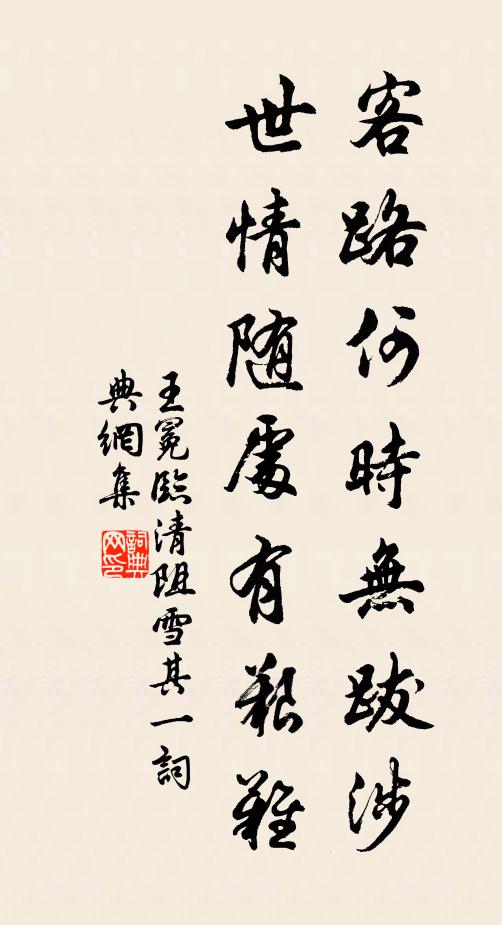 客路何時無跋涉
世情隨處有艱難
王冕臨清阻雪其一詞
典網集
詞典
网印